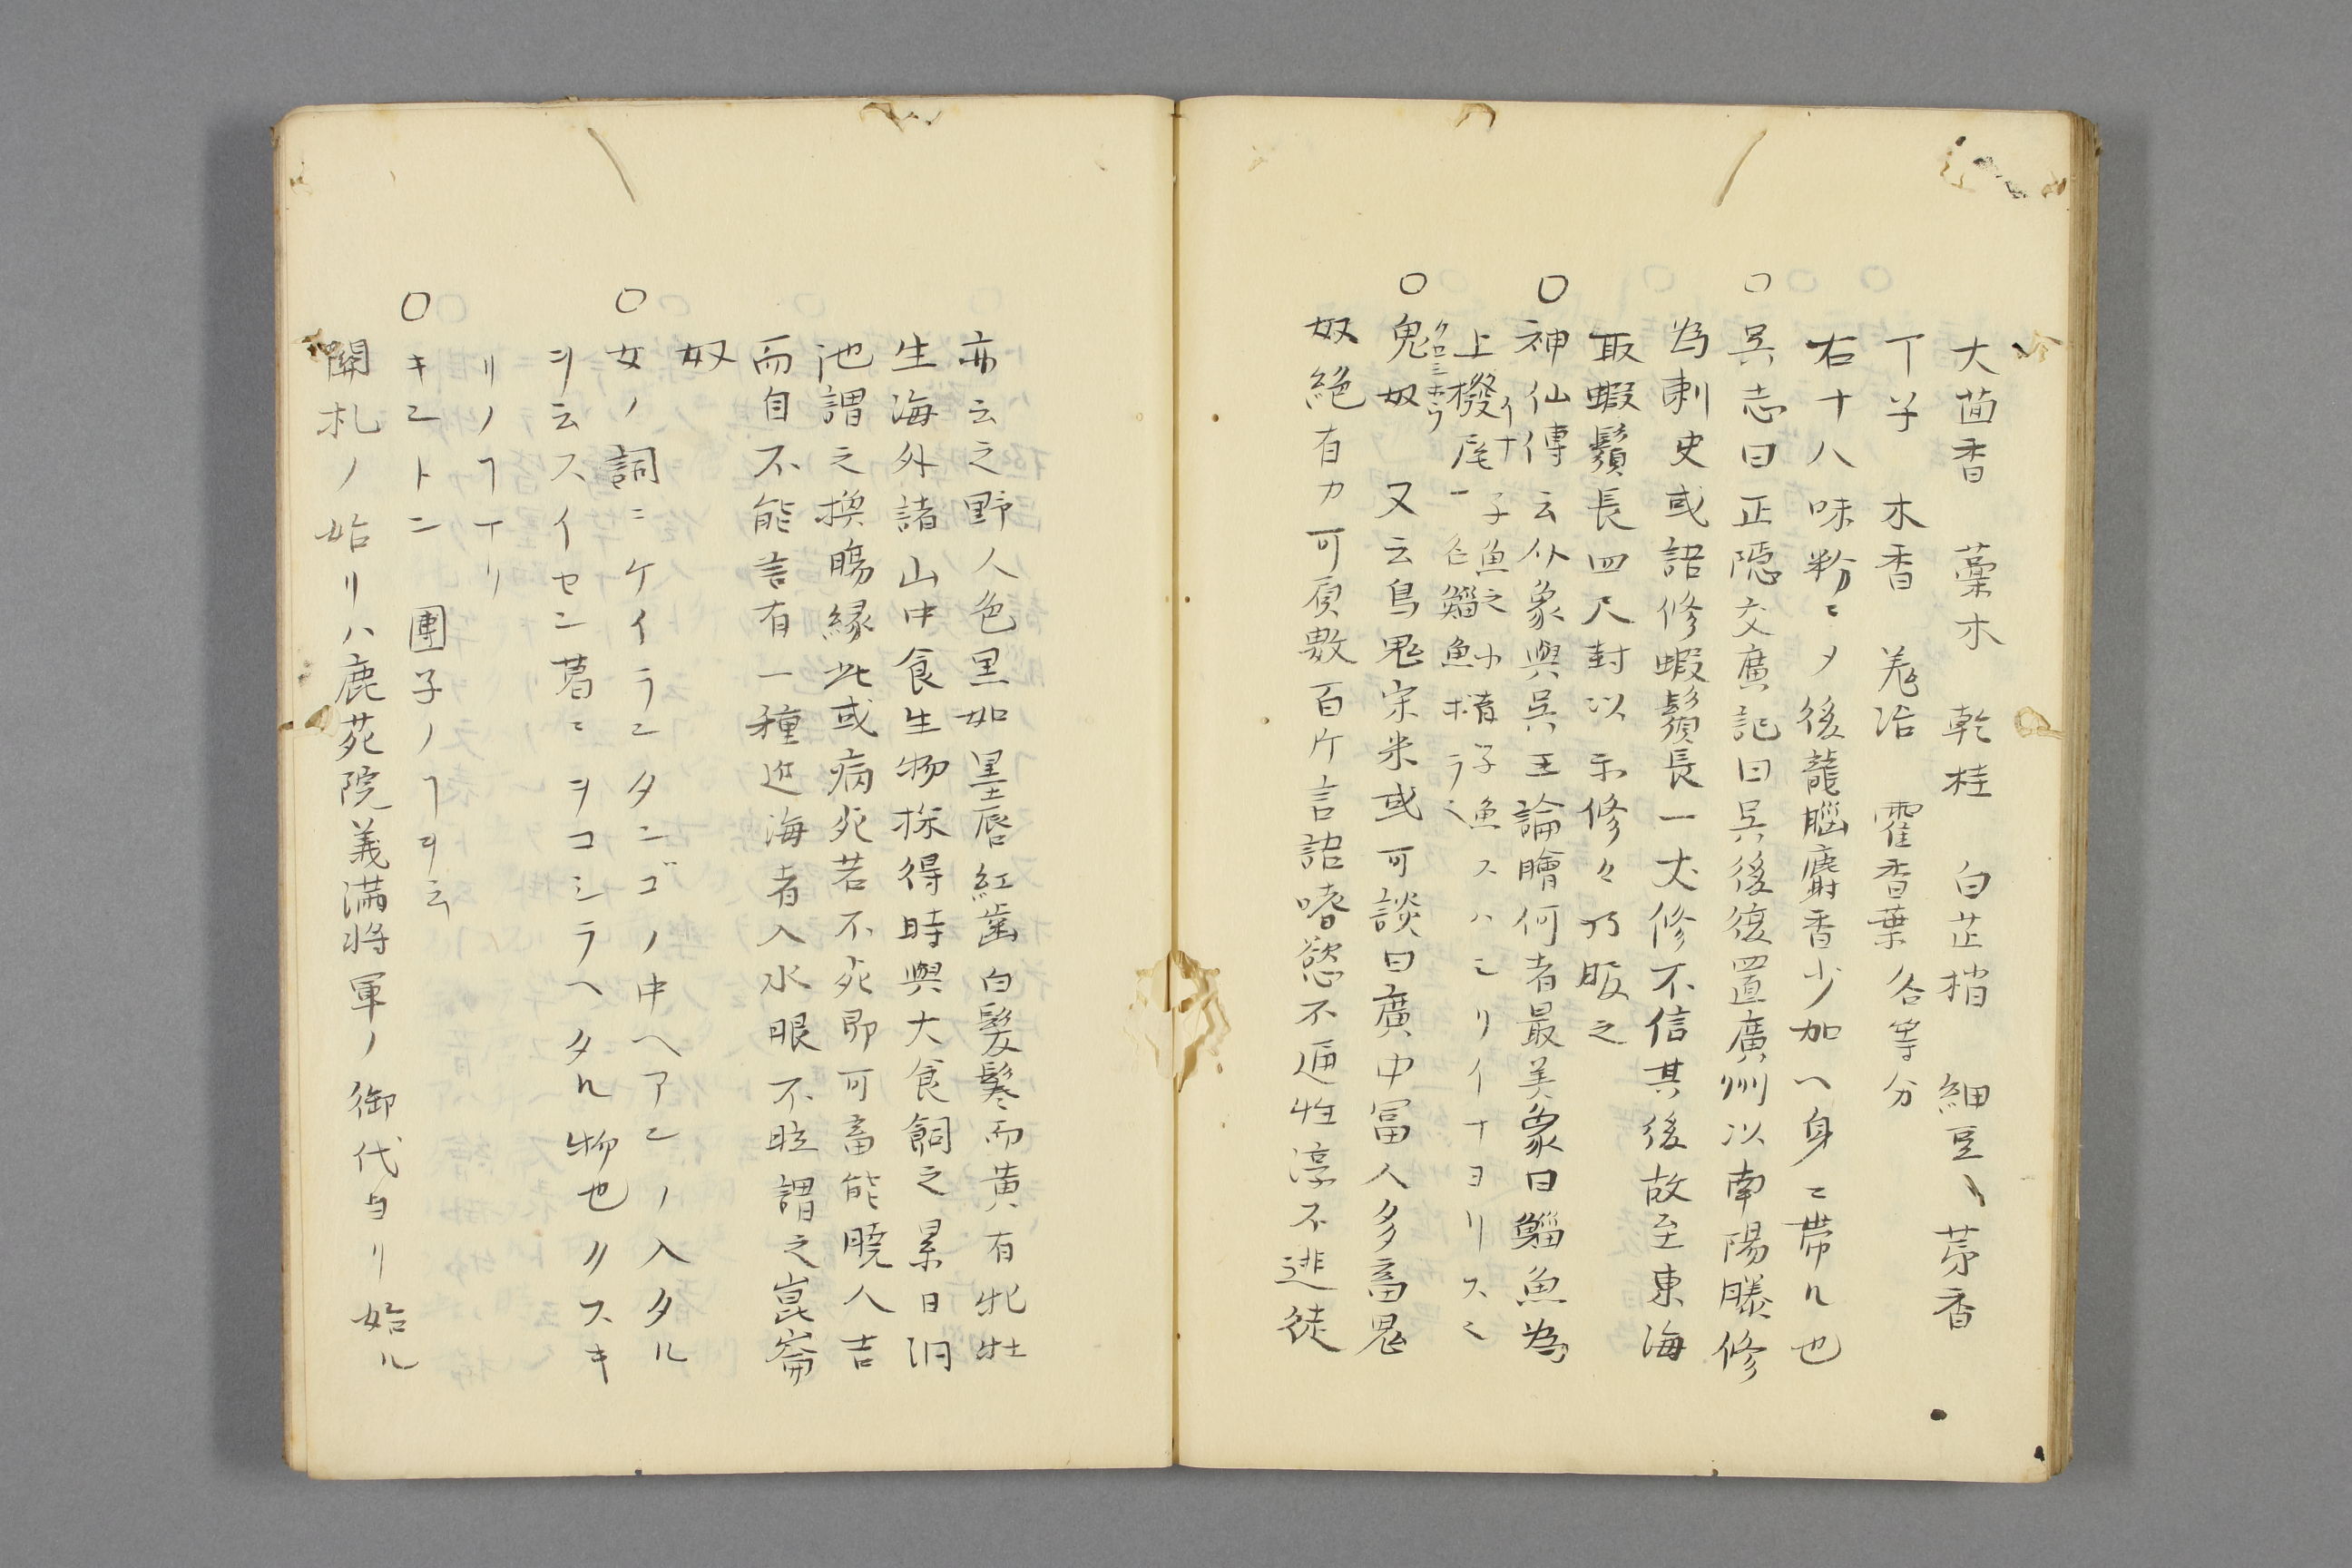 大茴香　藁本　乾桂　白芷梢　細豆、　芽香
丁子　木香　羗活　霍香葉　各等分
右十八味粉ニメ後龍脳麝香少加ヘ身ニ帯ル也
〇呉志曰正隠交廣記曰呉後復置廣州以南陽滕修
為刺史或語修蝦鬚長一丈修不信其後故至東海
取蝦鬚長四尺封以示修々乃服之
〇神仙傳云介象與呉王論膾何者最美象曰鯔魚為
上
〇鬼奴　又云鳥鬼宋米或可談曰廣中冨人多畜鬼
奴絶有力可負数百斤言語嗜慾不通性淳不逃徒
亦云之野人色黒如墨唇紅歯白髪鬈而黄有牝牡
生海外諸山中食生物採得時與大食飼之累日泂
池謂之換腸縁此或病死若不死即可畜能暁人言
而自不能言有一種近海者入水眼不眩謂之崑崙
奴
〇女ノ詞ニケイランタンゴノ中ヘアンノ入タル
ヲ云スイセン葛ニヲコシラヘタル物也ノリスキ
リノヿナリ
〇キントン　團子ノヿヲ云
関札ノ始リハ鹿苑院義満将軍ノ御代ヨリ始ル